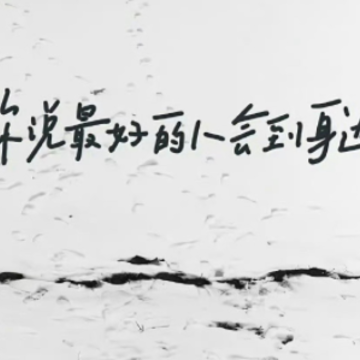 你说最好的人会到身边